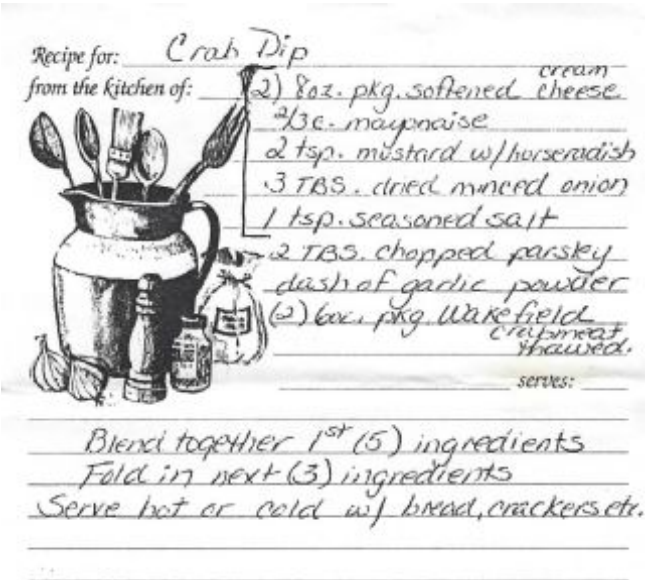 Recipe for: Crab Dip
from the kitchen of: (2) 8oz. pkg. softened cream cheese
2/3 c. mayonaise
2 tsp. mustard w/horseradish
3 TBS. dried minced onion
1 tsp. seasoned salt
2 TBS. chopped parsley
dash of garlic powder
(2) 6oz. pkg. Wakefield
crabmeat
thawed.
serves:
Blend together 1st (5) ingredients
Fold in next (3) ingredients
Serve hot or cold w/ bread, crackers etc.